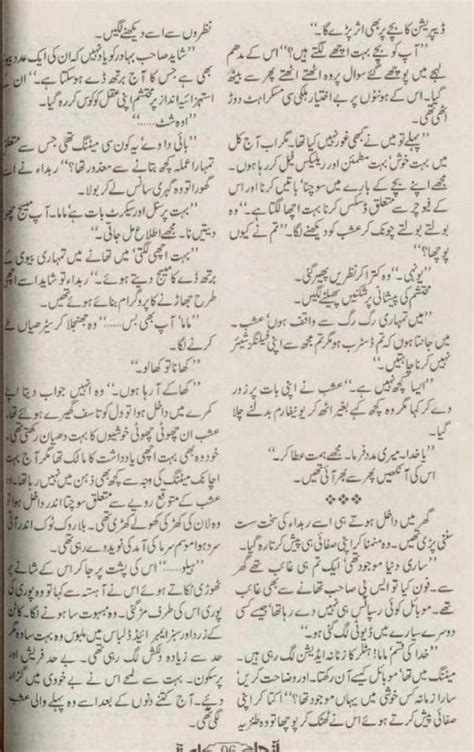 ڈیپریشن کا بچے پر بھی اثر پڑے گا۔“
”آپ کو بچے بہت اچھے لگتے ہیں؟“ اس کے مدھم
لہجے میں پوچھے گئے سوال پر وہ اٹھتے اٹھتے پھر سے بیٹھ
گیا۔ اس کے ہونٹوں پر بے اختیار ہلکی سی مسکراہٹ دوڑ
اٹھی تھی۔
”پہلے تو میں نے کبھی غور نہیں کیا تھا۔ مگر اب آج کل
میں بہت خوش، بہت مطمئن اور ریلیکس فیل کر رہا ہوں۔
مجھے اپنے بچے کے بارے میں سوچنا، باتیں کرنا اور اس
کے فیوچر سے متعلق ڈسکس کرنا بہت اچھا لگتا ہے۔“ وہ
بولتے بولتے چونک کر عشب کو دیکھنے لگا۔ ”تم نے کیوں
پوچھا؟“
”یونہی۔“ وہ کترا کر نظریں پھیر گئی۔
محتشم کی پیشانی پر شکنیں پھیلنے لگیں۔
”میں تمہاری رگ رگ سے واقف ہوں عشب۔
جانتا ہوں کہ تم ڈسٹرب ہو مگر تم مجھ سے اپنی فیلنگز شیئر
کرنا نہیں چاہتیں۔“
”ایسا کچھ نہیں ہے۔“ عشب نے اپنی بات پر زور
دے کر کہا مگر وہ کچھ کہے بغیر اٹھ کر یونیفارم بدلنے چلا
گیا۔
”یا خدا۔ میری مدد فرما۔ مجھے ہمت عطا کر۔“
اس کی آنکھیں پھر سے بھر آئی تھیں۔
❖❖❖
گھر میں داخل ہوتے ہی اسے ربداء کی سخت ست
سننی پڑی تھیں۔ وہ منمنا کر اپنی صفائی پیش کرتا رہ گیا۔
”ساری دنیا موجود تھی۔ ایک تم ہی غائب تھے
۔ فون کیا تو ایس پی صاحب تھانے سے بھی غائب
تھے۔ موبائل کوئی رسپانس ہی نہیں دے رہا تھا جیسے کسی
دوسرے سیارے میں ڈیوٹی لگ گئی ہو۔“
”خدا کی قسم ماما! ہٹلر کا زنانہ ایڈیشن لگ رہی ہیں۔
میٹنگ میں تھا، موبائل کیسے آن رکھتا۔ اور وضاحت کریں
سارا زمانہ کس خوشی میں یہاں موجود تھا؟“ اکتا کر اپنی
صفائی پیش کرتے ہوئے اس نے ٹھٹک کر پوچھا تو وہ طنزیہ
نظروں سے اسے دیکھنے لگیں۔
”شاید صاحب بہادر کو یاد نہیں کہ ان کی ایک عدد بیوی
بھی ہے جس کا آج برتھ ڈے ہو سکتا ہے۔“ ان کے
استہزائیہ انداز پر محتشم اپنی عقل کو کوس کر رہ گیا۔
”اوہ شٹ......“
”بائی دا وے یہ کون سی میٹنگ تھی جس سے متعلق
تمہارا عملہ کچھ بتانے سے معذور تھا؟“ ربداء نے
گھورا تو وہ گہری سانس لے کر بولا۔
”بہت پرسنل اور سیکرٹ بات ہے ماما۔ آپ میسج چھوڑ
دیتیں نا۔ مجھے اطلاع مل جاتی۔“
”بہت اچھی لگتی میں تھانے میں تمہاری بیوی کے
برتھ ڈے کا میسج دیتے ہوئے۔“ ربداء تو شاید اسے
طرح جھاڑنے کا پروگرام بنائے ہوئے تھی۔
”ماما آپ بھی بس......“ وہ جھنجلا کر سیڑھیاں
لگا۔
”کھانا تو کھا لو۔“
”کھا کے آ رہا ہوں۔“ انہیں جواب دیتا اپنے
کمرے میں داخل ہوا تو دل کو تاسف گھیرے ہوئے تھا۔
عشب ان چھوٹی چھوٹی خوشیوں کا بہت دھیان رکھتی تھی۔
محتشم کو بھی اچھی یادداشت کا مالک تھا مگر آج بہت
اچانک میٹنگ کی وجہ سے کچھ بھی ذہن میں نہیں رہا تھا۔
عشب کے متوقع رویے سے متعلق سوچتا اندر داخل ہوا تو
وہ لان کی کھڑکی کھولے کھڑی تھی۔ بلا روک ٹوک آتی
سرد ہوا موسم سرما کی آمد کی نوید دے رہی تھی۔
”ہیلو......“ اس کی پشت پر جا کر اس کے شانے پر
ٹھوڑی ٹکاتے ہوئے اس نے آہستہ سے کہا تو وہ پوری کی
پوری اس کی طرف مڑ گئی۔ وہ مبہوت سا ہونے لگا۔ کاٹن
کے زرد اور سبز ایمبرائیڈ لباس میں ملبوس وہ بہت سادہ مگر
حد سے زیادہ دلکش لگ رہی تھی۔ بے حد فریش اور
پرسکون۔ بہت سے لمحے اس نے بے خودی میں گزار
دیئے۔ آج کتنے دنوں کے بعد اسے وہ پہلے والی عشب
لگی تھی۔
96